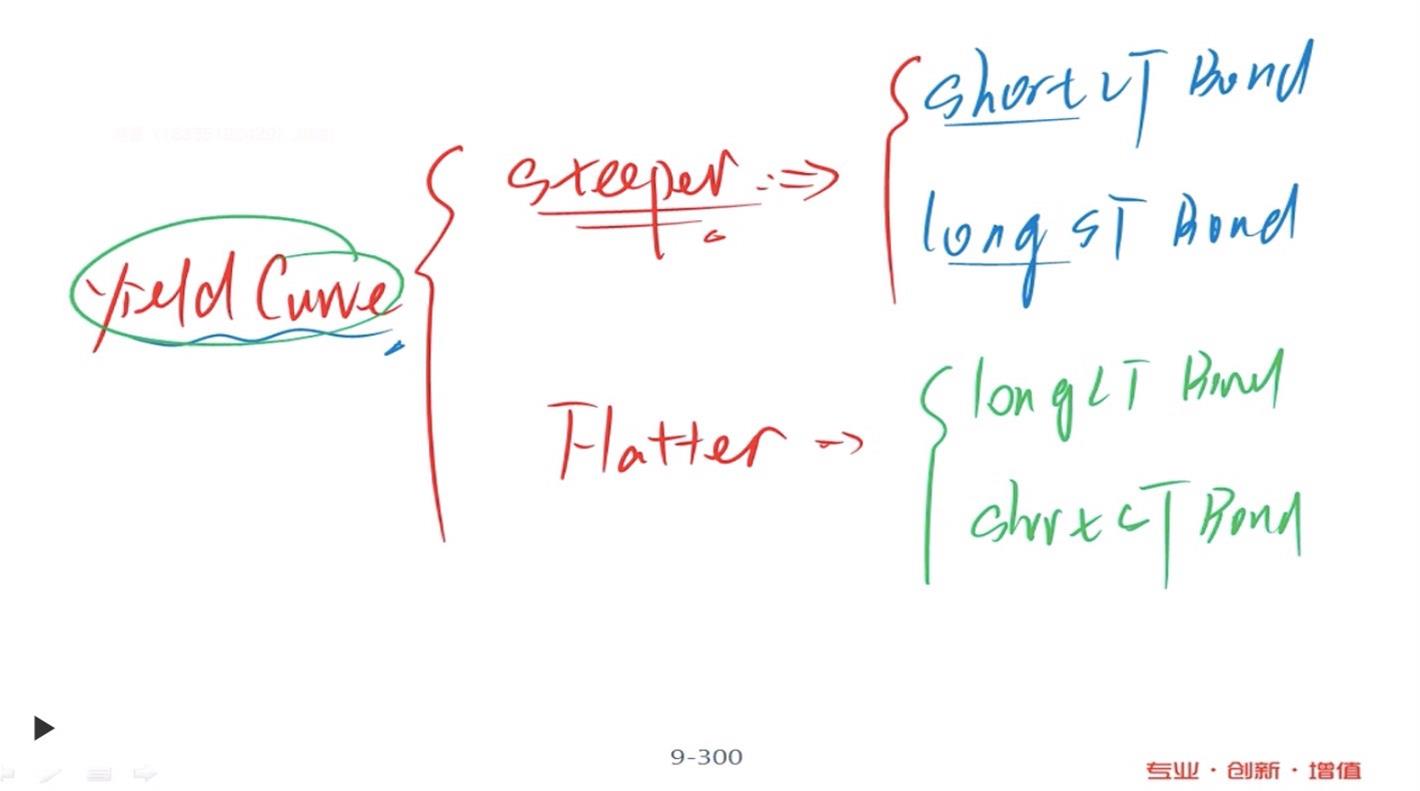 short LT Bond
steeper ⇒
long ST Bond
Yield Curve
long LT Bond
Flatter →
short ST Bond
9-300
专业·创新·增值